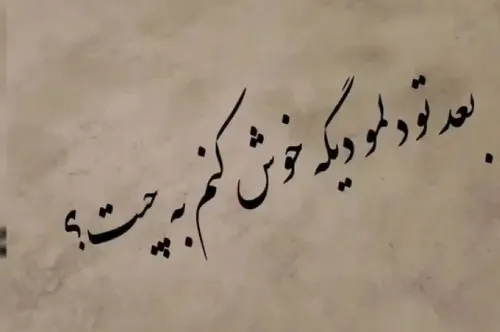 بعد تو دلمو دیگه خوش کنم به چیت؟